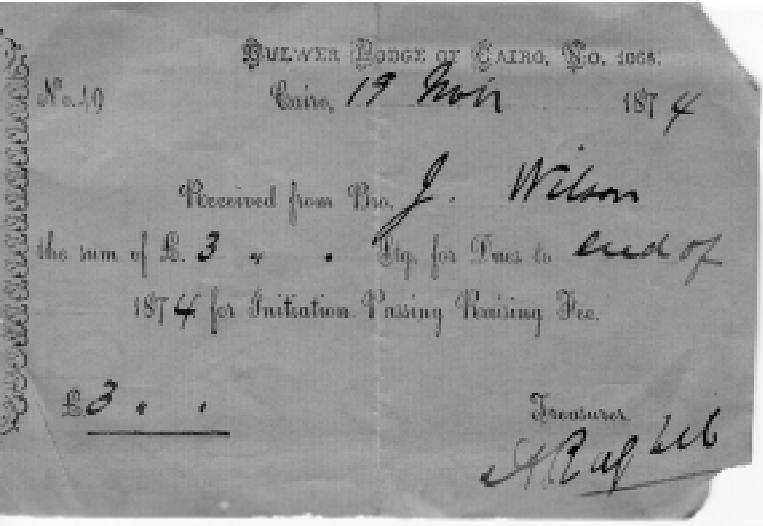 BULWER LODGE OF CAIRO, No. 1068.
No. 40 Cairo, 19 Novr 1874
Received from Bro. J. Wilson
the sum of £. 3 " " Stg. for Dues to end of
1874 for Initiation Passing Raising Fee.
£3 " "
Treasurer